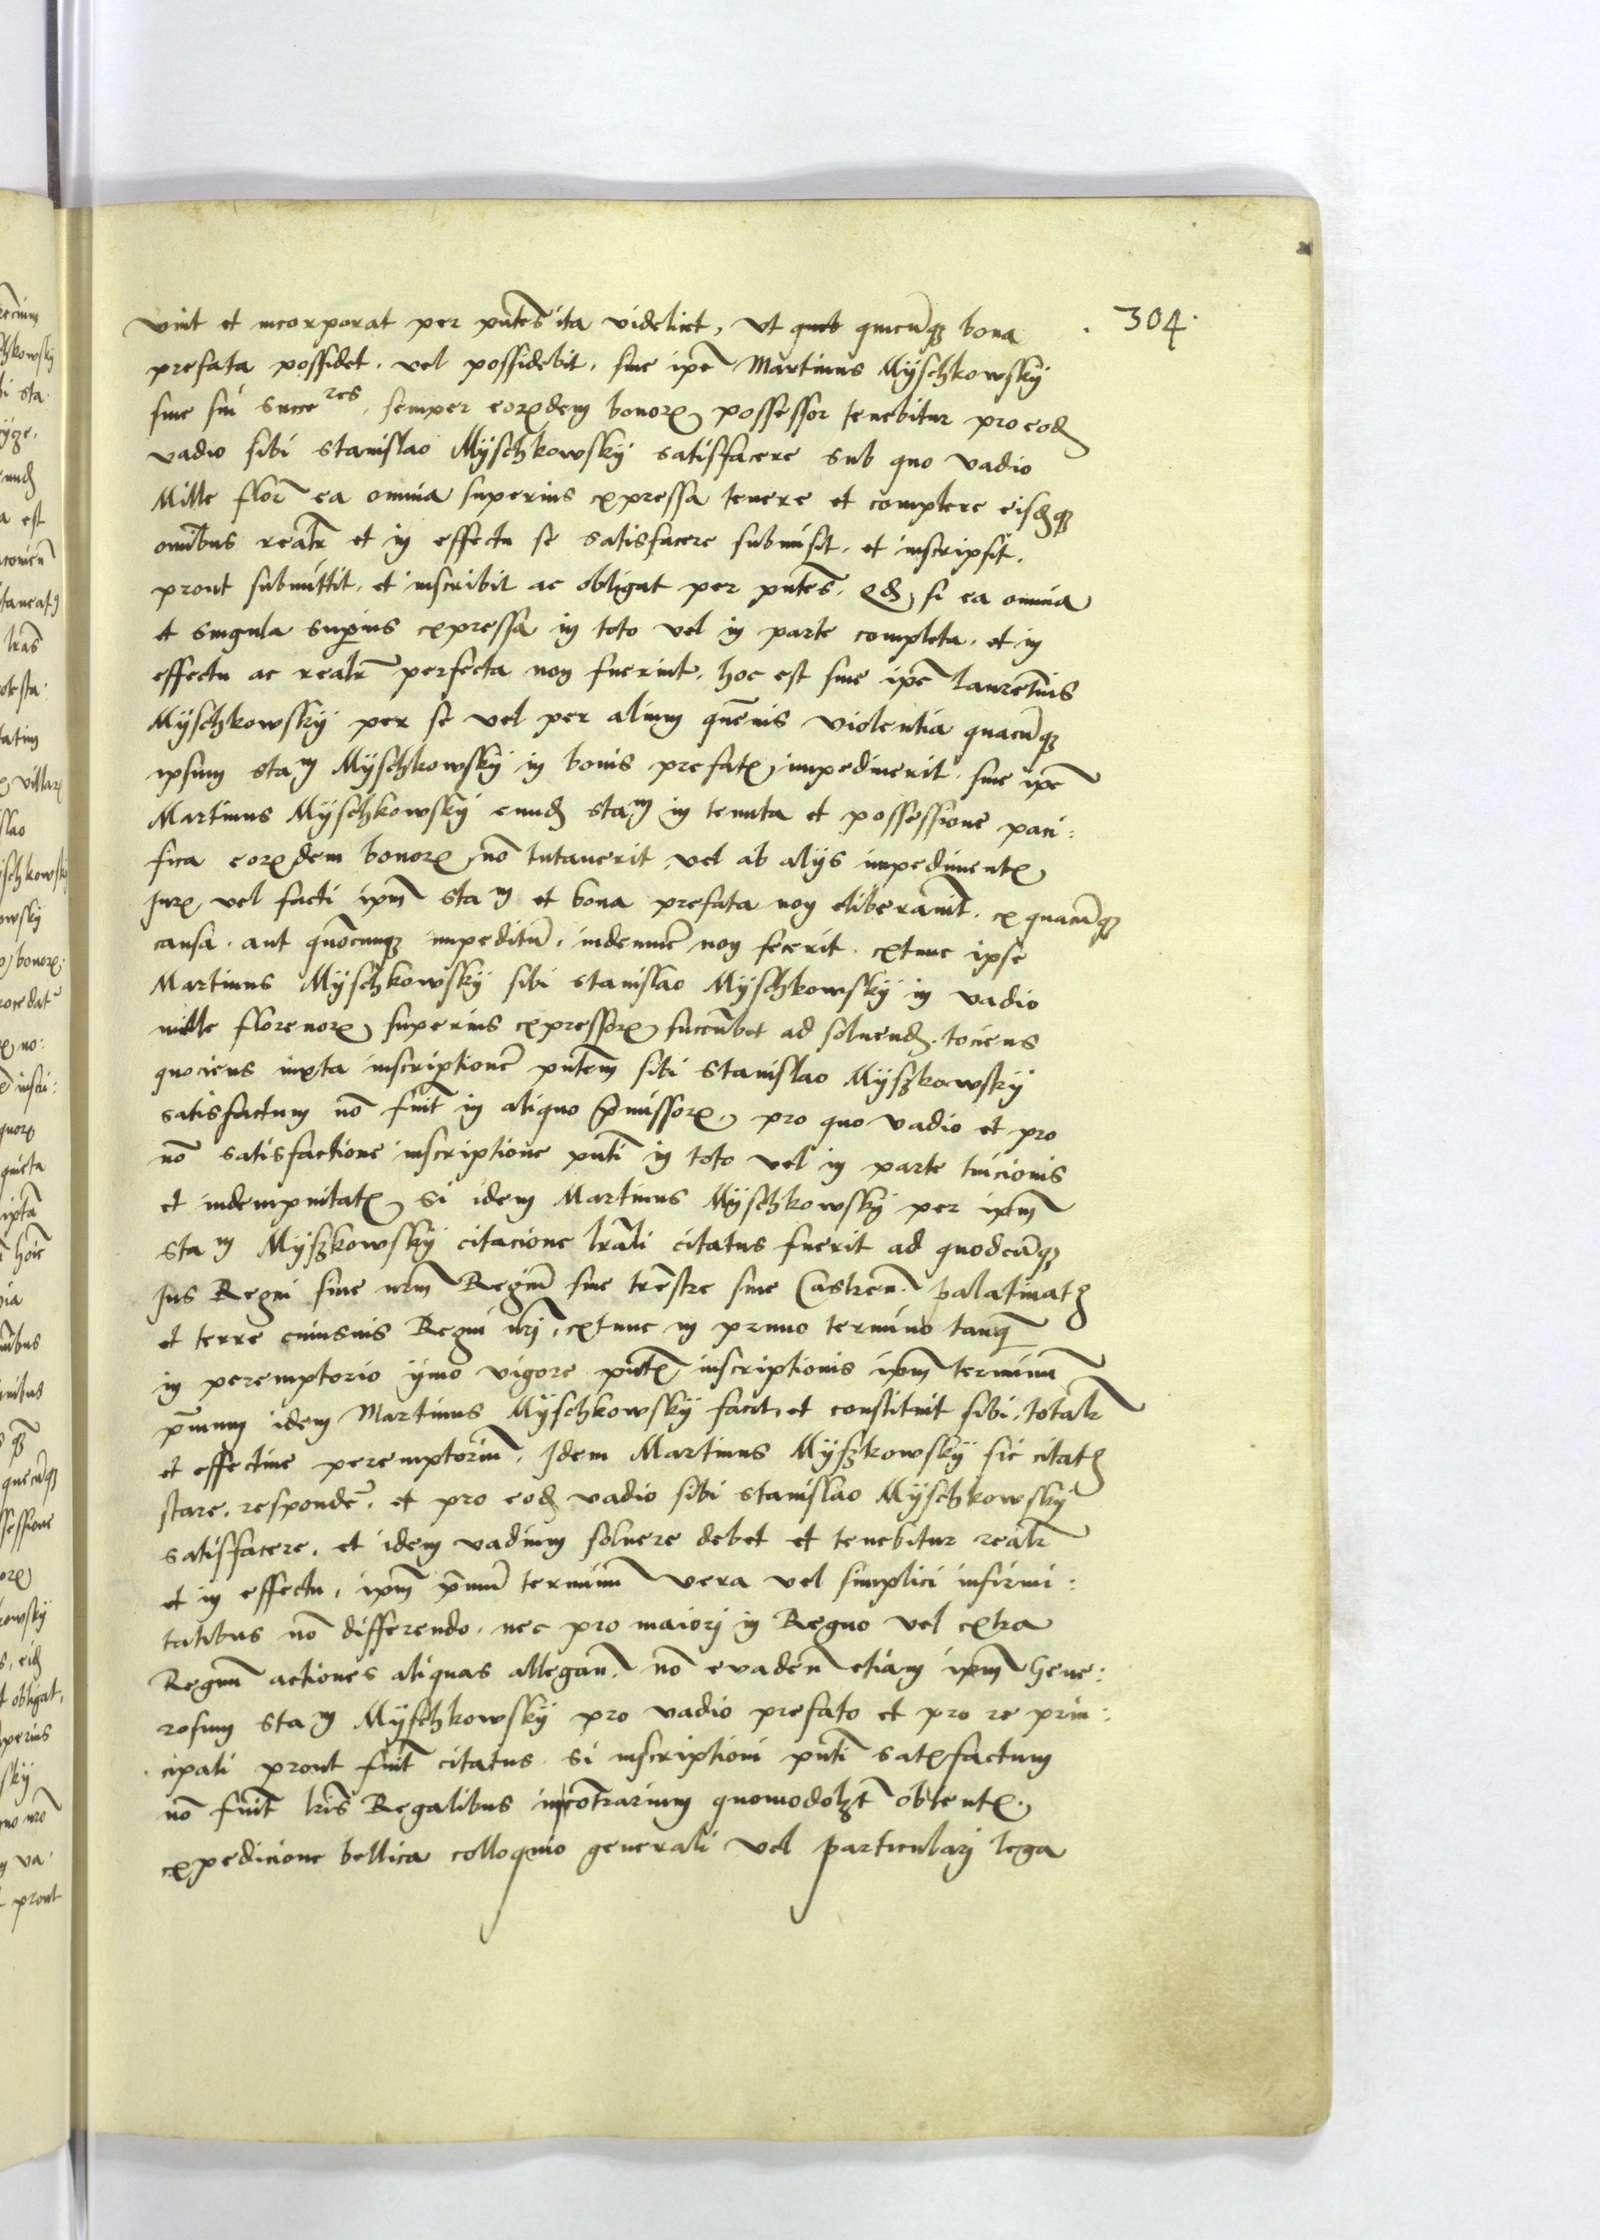 304.
vnit et incorporat per pñtes ita videlicet, vt quicũqꝫ bona
prefata possidet. vel possidebit. siue ipẽ Martinus Myschkowsky
siue sui succeres, semper eorꝝdem bonorꝝ possessor tenebitur pro eod̃
vadio sibi Stanislao Myschkowsky satisfacere sub quo vadio
Mille flor̃ ea omnia superius expressa tenere et complere eisd̃qꝫ
om̃ibus realr̃ et in effectu se satisfacere submisit. et inscripsit.
prout submittit. et inscribit ac obligat per pñtes. Qd̃ si ea omnia
et singula supius expressa in toto vel in parte completa. et in
effectu ac realr̃ perfecta non fuerint. hoc est siue ipẽ laurẽtius
Myschkowsky per se vel per alium quẽuis violentia quacũqꝫ
ipsum Stam Myschkowsky in bonis prefatꝭ impediuerit. siue ipẽ
Martinus Myschkowsky eund̃ Stam in tenuta et possessione paci:
fica eorꝝdem bonorꝝ nõ tutauerit vel ab alijs impedimentꝭ
Jurꝭ vel facti ipm̃ Stam et bona prefata non eliberauit. ex quacũqꝫ
causa. aut quõcunqꝫ impeditũ. indemnẽ non fecerit. extunc ipse
Martinus Myschkowsky sibi Stanislao Myschkowsky in vadio
mille florenorꝝ superius expressorꝝ succũbet ad soluend̃. tociens
quociens iuxta inscriptionẽ pñtem sibi Stanislao Myszkowsky
satisfactum nõ fuit̃ in aliquo p̃missorꝝ pro quo vadio et pro
nõ satisfactione inscriptione pñti in toto vel in parte tuicionis
et indempnitatꝭ si idem Martinus Myschkowsky per ipm̃
Stam Myszkowsky citacione lr̃ali citatus fuerit ad quodcũqꝫ
Jus Regni siue nr̃m Regiũ siue tr̃estre siue Castren̄. palatinatꝰ
et terre cuiusuis Regni nr̃j, extunc in primo termino tanq̃
in peremptorio ymo vigore pñtꝭ inscriptionis ipm̃ terminũ
p̃imum idem Martinus Myschkowsky facit, et constituit sibi, totalr̃
et effectiue peremptoriũ. Idem Martinus Myszkowsky sic citatꝰ
stare. respondẽ. et pro eod̃ vadio sibi Stanislao Myschkowsky
satisfacere. et idem vadium soluere debet et tenebitur realr̃
et in effectu, ipm̃ p̃imũ terminũ vera vel simplici infirmi:
tatibus nõ differendo. nec pro maiorj in Regno vel extra
Regnũ actiones aliquas allegan̄. nõ evaden̄ etiam ipm̃ Gene:
rosum Stam Myschkowsky pro vadio prefato et pro re prin:
cipali prout fuit̃ citatus si inscriptioni pñti satꝭfactum
nõ fuit̃ lr̃is Regalibus in cõtrarium quomodolꝫt obtentꝭ.
expedicione bellica colloquio generali vel particularj lega